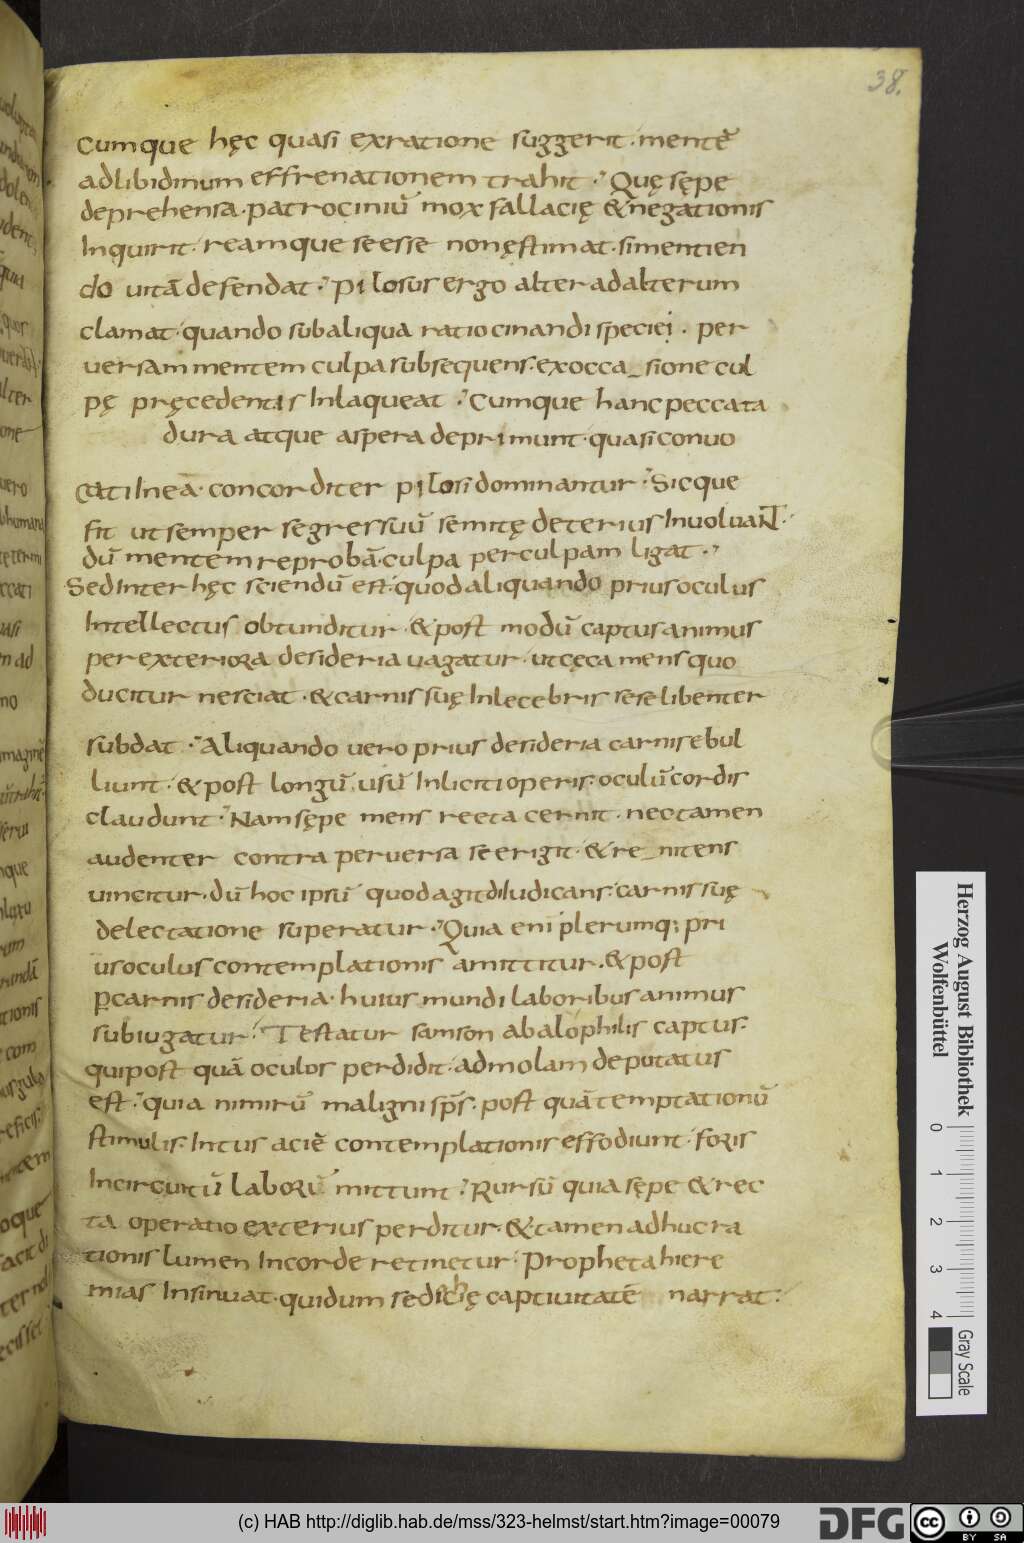 38.
Cumque hęc quasi exratione suggerit · mentē
adlibidinum effrenationem trahit · Quę sępe
deprehensa · patrociniū mox fallacię & negationis
Inquirit · reamque seesse nonęstimat · simentien
do uitā defendat · pilosus ergo alter adalterum
clamat · quando subaliqua ratiocinandi speciei · per
uersam mentem culpa subsequens · exocca_sione cul
pę pręcedentis Inlaqueat · Cumque hanc peccata
dura atque aspera deprimunt · quasi conuo
cati Ineā · concorditer pilosi dominantur · Sicque
fit ut semper segressuū semitę deterius InuoluaNT ·
dū mentem reprobā · culpa per culpam ligat ·
Sed Inter hęc sciendū est · quod aliquando prius oculus
Intellectus obtunditur · & post modū captus animus
per exteriora desideria uagatur · ut cęca mens quo
ducitur nesciat · & carnis suę Inlecebris sese libenter
subdat · Aliquando uero prius desideria carnis ebul
liunt · & post longū usū Inliciti operis · oculū cordis
claudunt · Nam sępe mens recta cernit · nec tamen
audenter contra peruersa se erigit · & re_nitens
uincitur · dū hoc ipsū quod agit diIudicans · carnis suę
delectatione superatur · Quia enī plerumq; pri
us oculus contemplationis amittitur · & post
p carnis desideria · huius mundi laboribus animus
subiugatur · Testatur samson abalophilis captus ·
qui post quā oculos perdidit · admolam deputatus
est · quia nimirū maligni sps · post quā temptationū
stimulis · Intus aciē contemplationis effodiunt · foris
Incircuitū laborū mittunt · Rursū quia sępe & rec
ta operatio exterius perditur · & tamen adhuc ra
tionis lumen Incorde retinetur · Propheta hiere
mias Insinuat · quidum sedichię captiuitatē narrat ·
Herzog August Bibliothek
Wolfenbüttel
0 1 2 3 4
Gray Scale
(c) HAB http://diglib.hab.de/mss/323-helmst/start.htm?image=00079
DFG
cc BY SA